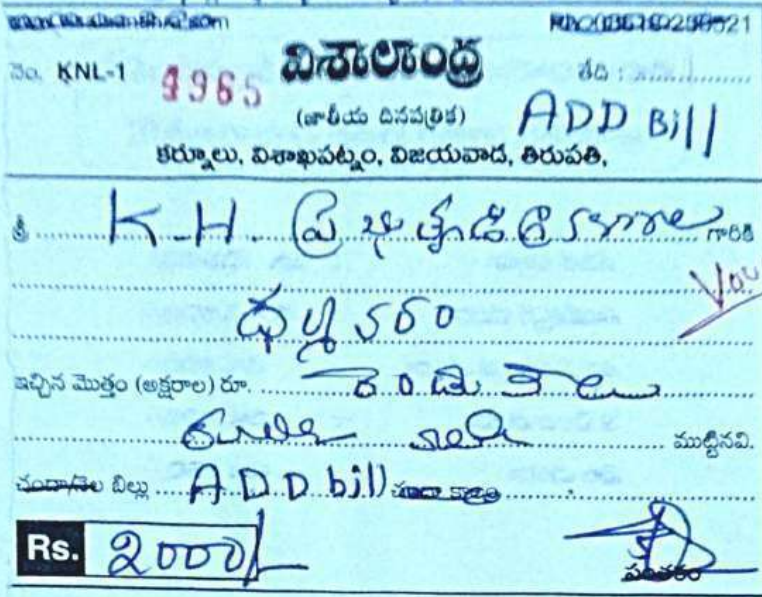 నెం. KNL-1 4965 విశాలాంధ్ర తేది :
(జాతీయ దినపత్రిక) ADD Bill
కర్నూలు, విశాఖపట్నం, విజయవాడ, తిరుపతి,
శ్రీ K.H. ప్ర గారికి
ధర్మవరం
ఇచ్చిన మొత్తం (అక్షరాల) రూ. రెండు వేలు
ముట్టినవి.
చందా/నెల బిల్లు ADD bill చందా
Rs. 2000/-
సంతకం